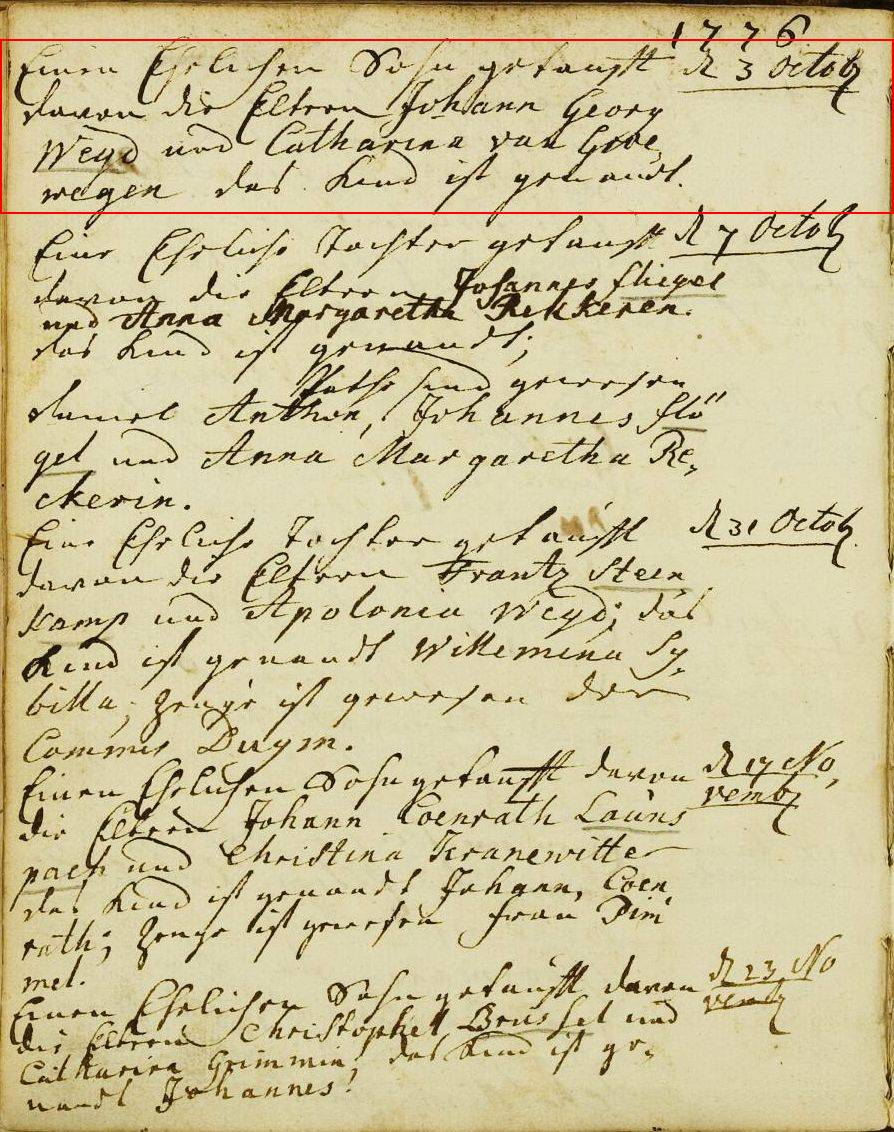 1776
Einen Ehelichen Sohn getaufft d 3 Octob
davon die Eltern Johann Georg
Weyd und Catharina van Groe,
wegen das Kind ist genandt.
Eine Ehelichs Tochter getaufft d 7 Octob
davon die Eltern Johannes fliegel
und Anna Margaretha Rekkeren.
das Kind ist genandt;
Pathe sind gewesen
daniel Anthon, Johannes flö"
gel und Anna Margaretha Re,
ckerin.
Eine Ehelichs Tochter getaufft d 31 Octob
davon die Eltern Frantz Steen
kamp und Apolonia Weyd; das
Kind ist genandt Willemina Sy,
billa; Zeuge ist gewesen der
Commis Duym.
Einen Ehelichen Sohn getaufft davon d 17 No,
die Eltern Johann Coenrath Launs vemb
pach und Christina Kranewitter
das Kind ist genandt Johann, Coen
rath; Zeuge ist gewesen frau Dim
mel.
Einen Ehelichen Sohn getaufft davon d 23 No
die Eltern Christophel Brussel und vemb
Catharina Grimmin, das Kind ist ge,
nandt Johannes!